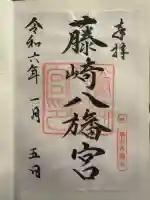 奉拝
藤崎八旛宮
令和六年 一月 五日